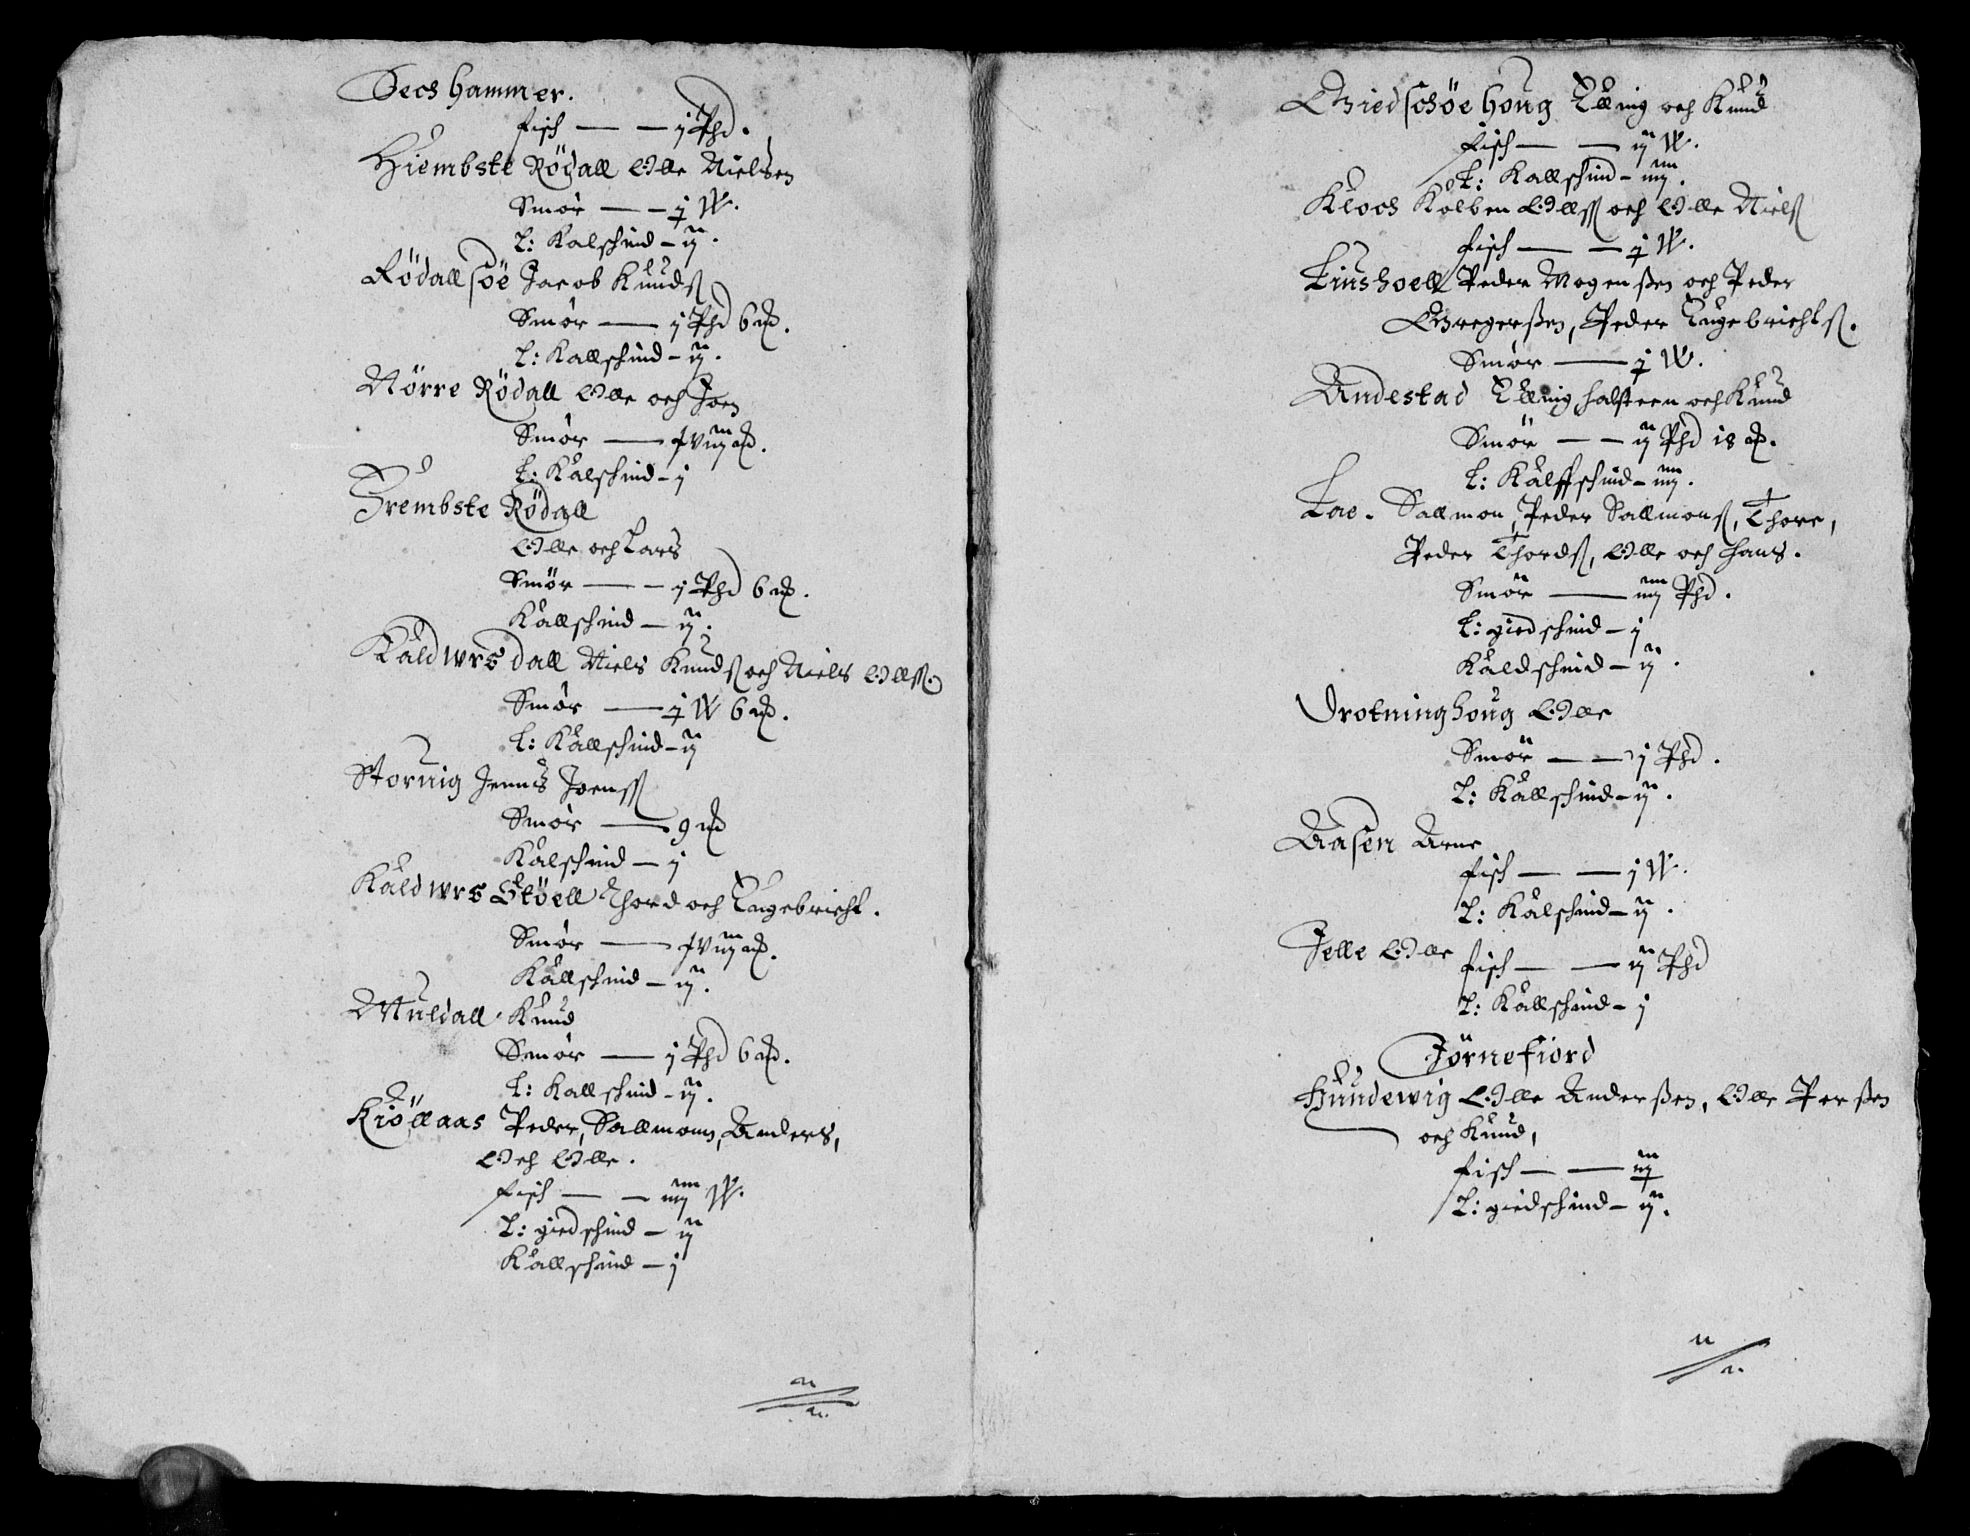 Sechhammer.
fisch — — j Phd.
Hiembste Rödall Olle Nielsen
Smör — — j W.
L: Kalschind — ij.
Rödallsöe Jacob Knudß
Smör — j Phd 6 mk.
L: Kallschind — ij.
Nörre Rödall Olle och Joen
Smör — xviij mk.
L: Kalschind — j
Frembste Rödall
Olle och Lars
Smör — — j Phd 6 mk.
Kallschind — ij.
Kaldwrsdall Niels Knudß och Niels Ollss.
Smör — j W 6 mk.
L: Kallschind — ij
Storuig Jenns Joenss
Smör — 9 mk
Kalschind — j
Kaldwrs Stöell Thord och Engebricht.
Smör — xviij mk.
Kallschind — ij.
Muldall Knud
Smör — j Phd 6 mk.
L: Kallschind — ij.
Kiöllaas Peder, Sallmonn, Anders,
Och Olle.
fisch — — iiij W.
L: giedschind — ij
Kallschind — j
Giedschöehoug Elling och Knud
fisch — — ij W.
L: Kallschind — iiij.
Klochkolben Ollss och Olle Nielß
fisch — — j W.
Liushoell Peder Mogenßen och Peder
Gregerßen, Peder Engebrichtß.
Smör — j W.
Andestad Elling, halsteen och Knud
Smör — — ij Phd 18 mk.
L: Kalffschind — iiij.
Lae. Sallmon, Peder Sallmonß, Thore,
Peder Thordß, Olle och Hans.
Smör — iiij Phd.
L: giedschind — j
Kaldschind — ij.
Drotninghoug Olle
Smör — — j Phd.
L: Kallschind — ij.
Aasen Arne
fisch — — j W.
L: Kalschind — ij.
Jelle Olle
fisch — — ij Phd
L: Kallschind — j
Jörnefiord
Hundewig Olle Anderßen, Olle Perßen
och Knud,
fisch — — iij
L: giedschind — ij.